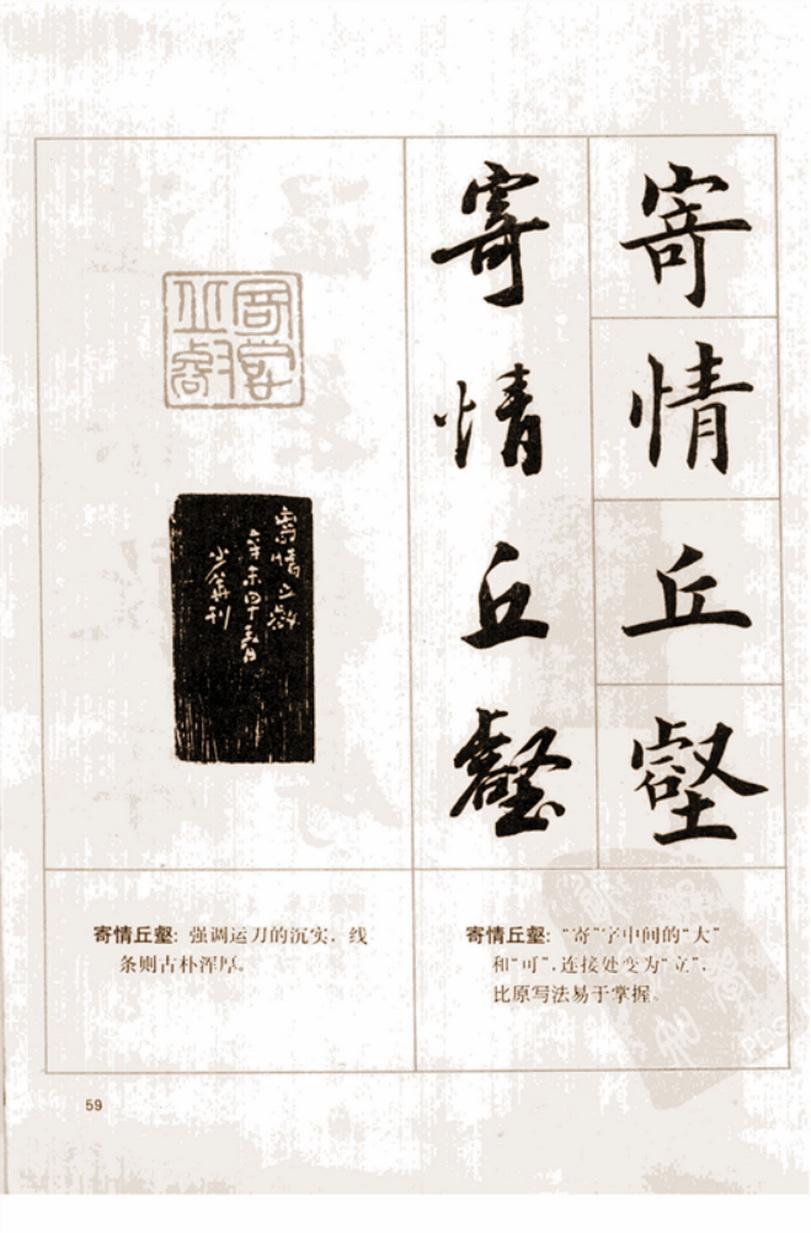 寄情丘壑
寄情丘壑
寄情丘壑
寄情丘壑
辛未四月春
少华刊
寄情丘壑：强调运刀的沉实，线
条则古朴浑厚。
寄情丘壑：“寄”字中间的“大”
和“可”，连接处变为“立”，
比原写法易于掌握。
59